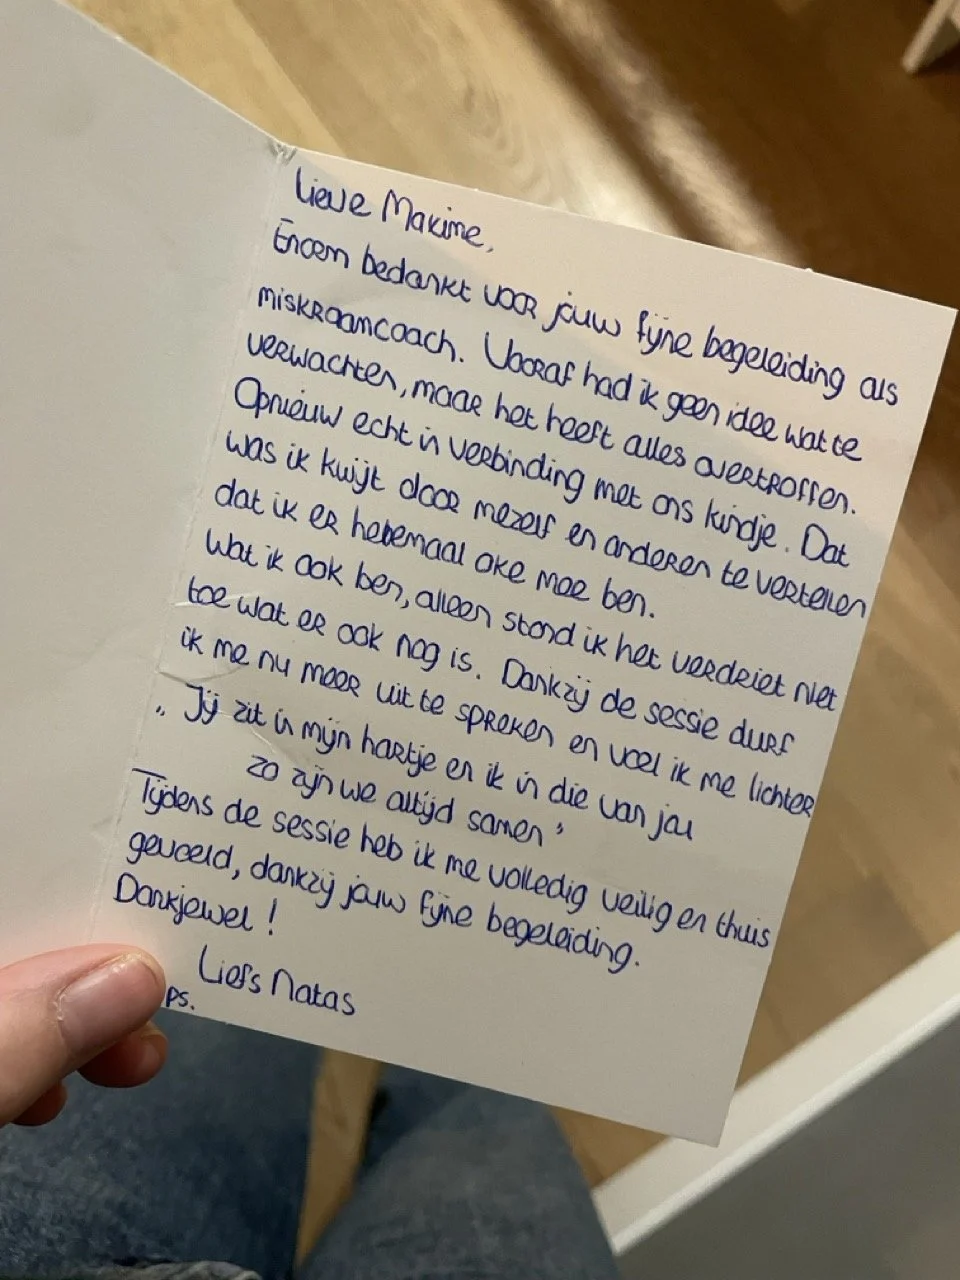 Lieve Maxime,
Enorm bedankt voor jouw fijne begeleiding als
miskraamcoach. Vooraf had ik geen idee wat te
verwachten, maar het heeft alles overtroffen.
Opnieuw echt in verbinding met ons kindje. Dat
was ik kwijt door mezelf en anderen te vertellen
dat ik er helemaal oke mee ben.
Wat ik ook ben, alleen stond ik het verdriet niet
toe wat er ook nog is. Dankzij de sessie durf
ik me nu meer uit te spreken en voel ik me lichter
„ Jij zit in mijn hartje en ik in die van jou
zo zijn we altijd samen"
Tijdens de sessie heb ik me volledig veilig en thuis
gevoeld, dankzij jouw fijne begeleiding.
Dankjewel !
Liefs Natas
PS.